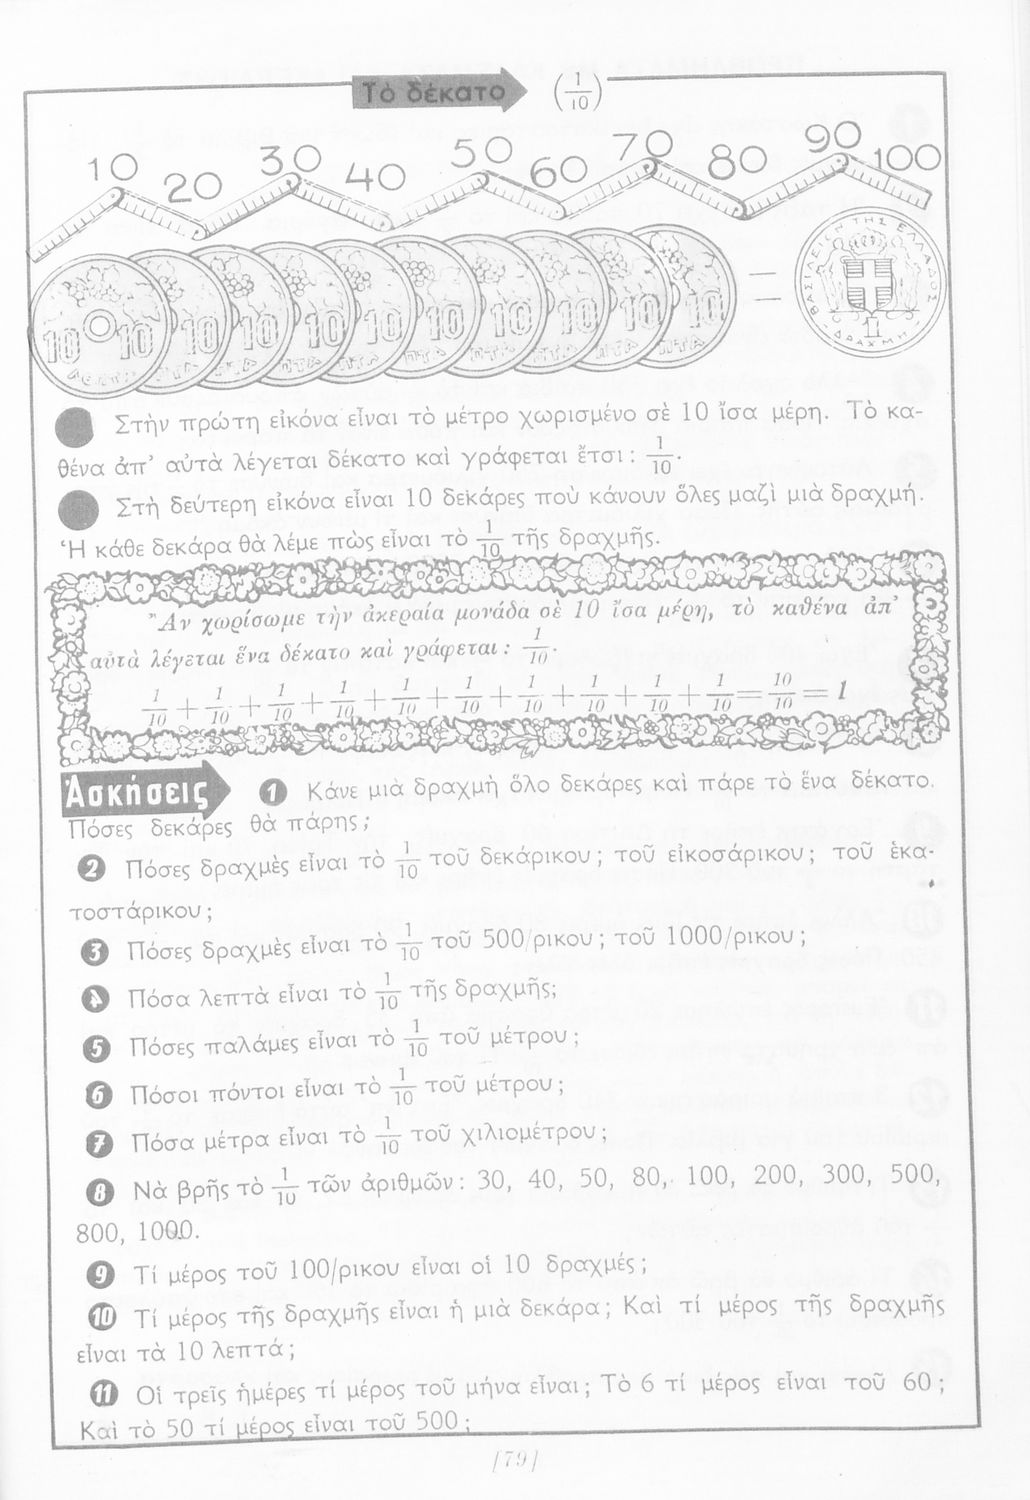 Τὸ δέκατο (1/10)
10 20 30 40 50 60 70 80 90 100
10 10 10 10 10 10 10 10 10 10 10
ΛΕΠΤΑ ΠΤΑ ΠΤΑ ΠΤΑ ΠΤΑ ΠΤΑ ΠΤΑ ΠΤΑ ΠΤΑ ΠΤΑ
=
ΒΑΣΙΛΕΙΟΝ ΤΗΣ ΕΛΛΑΔΟΣ
1
ΔΡΑΧΜΗ
Στὴν πρώτη εἰκόνα εἶναι τὸ μέτρο χωρισμένο σὲ 10 ἴσα μέρη. Τὸ κα-
θένα ἀπ’ αὐτὰ λέγεται δέκατο καὶ γράφεται ἔτσι : 1/10.
Στὴ δεύτερη εἰκόνα εἶναι 10 δεκάρες ποὺ κάνουν ὅλες μαζὶ μιὰ δραχμή.
Ἡ κάθε δεκάρα θὰ λέμε πὼς εἶναι τὸ 1/10 τῆς δραχμῆς.
Ἂν χωρίσωμε τὴν ἀκεραία μονάδα σὲ 10 ἴσα μέρη, τὸ καθένα ἀπ’
αὐτὰ λέγεται ἕνα δέκατο καὶ γράφεται : 1/10.
1/10 + 1/10 + 1/10 + 1/10 + 1/10 + 1/10 + 1/10 + 1/10 + 1/10 + 1/10 = 10/10 = 1
Ἀσκήσεις 1 Κάνε μιὰ δραχμὴ ὅλο δεκάρες καὶ πάρε τὸ ἕνα δέκατο.
Πόσες δεκάρες θὰ πάρης ;
2 Πόσες δραχμὲς εἶναι τὸ 1/10 τοῦ δεκάρικου ; τοῦ εἰκοσάρικου ; τοῦ ἑκα-
τοστάρικου ;
3 Πόσες δραχμὲς εἶναι τὸ 1/10 τοῦ 500/ρικου ; τοῦ 1000/ρικου ;
4 Πόσα λεπτὰ εἶναι τὸ 1/10 τῆς δραχμῆς;
5 Πόσες παλάμες εἶναι τὸ 1/10 τοῦ μέτρου ;
6 Πόσοι πόντοι εἶναι τὸ 1/10 τοῦ μέτρου ;
7 Πόσα μέτρα εἶναι τὸ 1/10 τοῦ χιλιομέτρου ;
8 Νὰ βρῆς τὸ 1/10 τῶν ἀριθμῶν : 30, 40, 50, 80, 100, 200, 300, 500,
800, 1000.
9 Τί μέρος τοῦ 100/ρικου εἶναι οἱ 10 δραχμές ;
10 Τί μέρος τῆς δραχμῆς εἶναι ἡ μιὰ δεκάρα ; Καὶ τί μέρος τῆς δραχμῆς
εἶναι τὰ 10 λεπτά ;
11 Οἱ τρεῖς ἡμέρες τί μέρος τοῦ μήνα εἶναι ; Τὸ 6 τί μέρος εἶναι τοῦ 60 ;
Καὶ τὸ 50 τί μέρος εἶναι τοῦ 500 ;
[79]